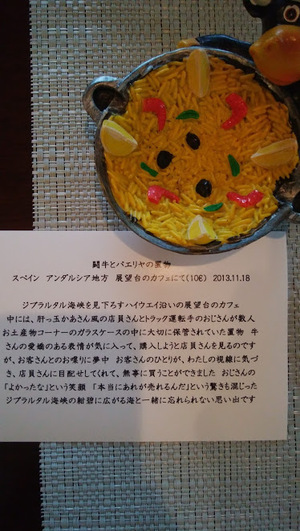 闘牛とパエリヤの置物
スペイン アンダルシア地方 展望台のカフェにて(10€) 2013.11.18
ジブラルタル海峡を見下ろすハイウエイ沿いの展望台のカフェ
中には、肝っ玉かあさん風の店員さんとトラック運転手のおじさんが数人
お土産物コーナーのガラスケースの中に大切に保管されていた置物 牛
さんの愛嬌のある表情が気に入って、購入しようと店員さんを見るのです
が、お客さんとのお喋りに夢中 お客さんのひとりが、わたしの視線に気づ
き、店員さんに目配せしてくれて、無事に買うことができました おじさんの
「よかったな」という笑顔 「本当にあれが売れるんだ」という驚きも混じった
ジブラルタル海峡の紺碧に広がる海と一緒に忘れられない思い出です